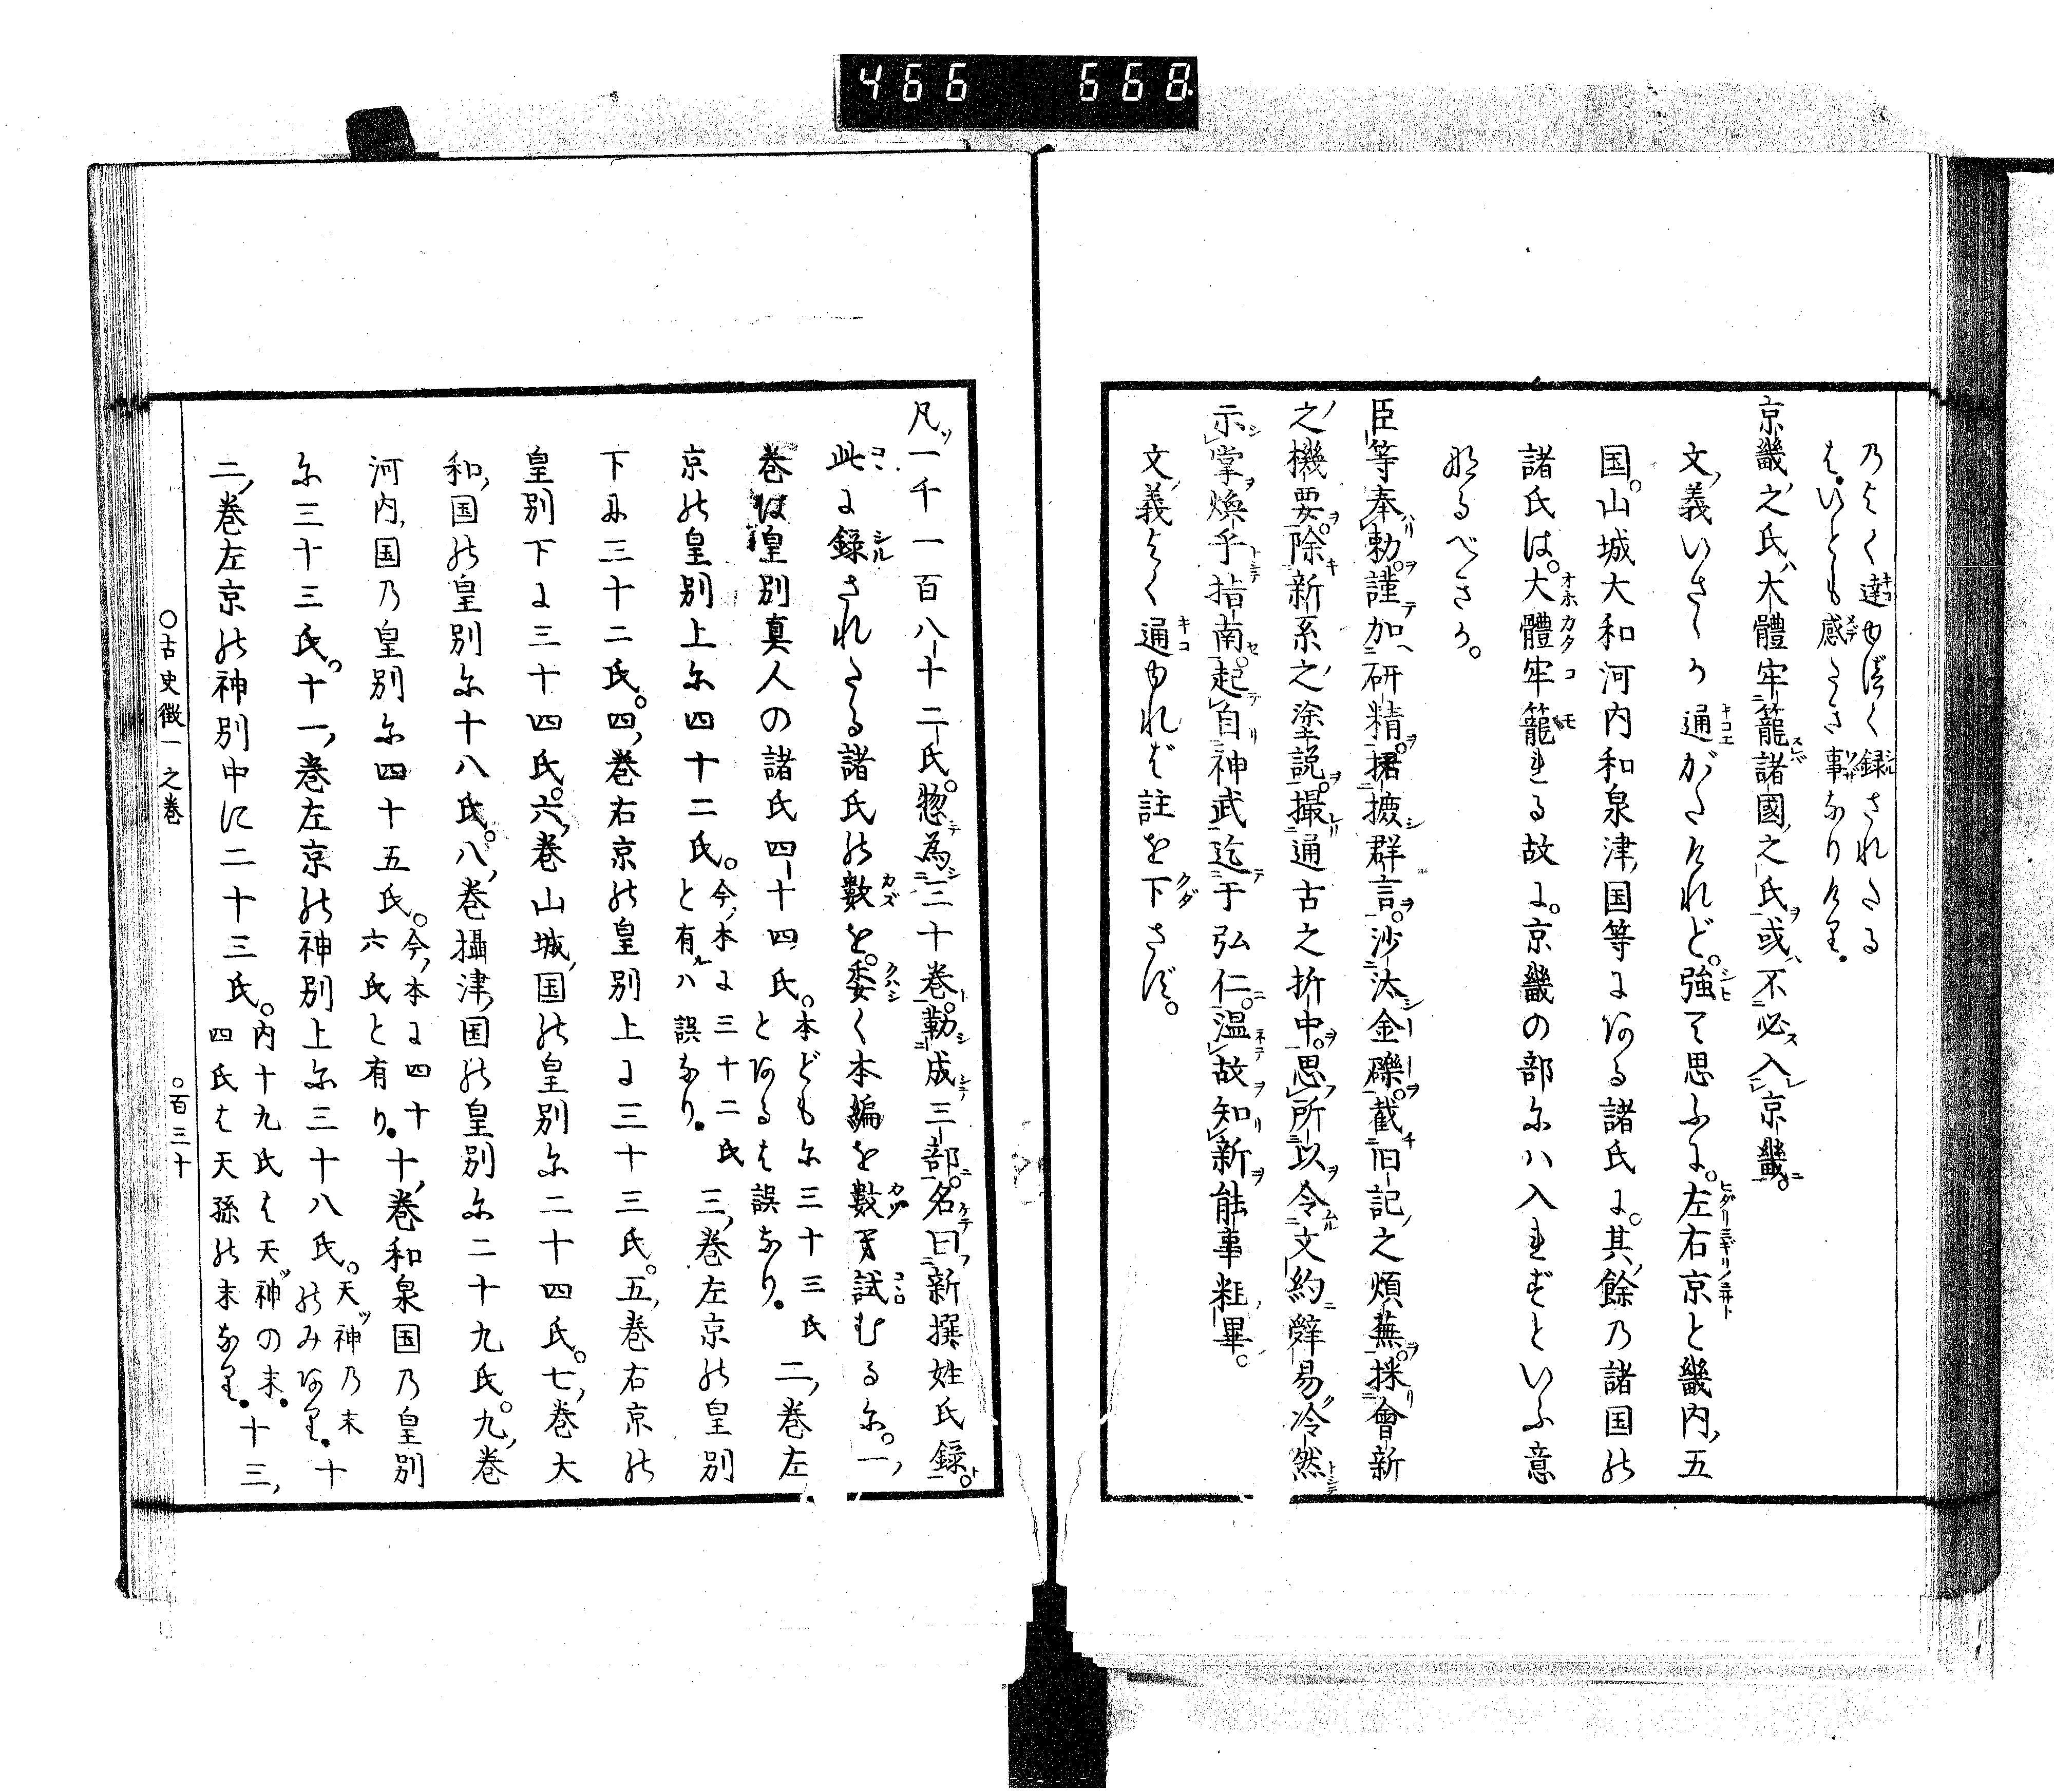 466 668
乃よく達ゆばく録されたる
は。いとも感たき事なりけり。
京畿之氏大體牢籠諸國之氏或不必入京畿。
文義いさゝか通がたけれど。強て思ふに。左右京と畿内五
国。山城大和河内和泉津国等にある諸氏に。其餘乃諸国の
諸氏は。大體牢籠れる故に。京畿の部にハ入れずといふ意
なるべきか。
臣等奉勅。謹加研精。捃摭群言。沙汰金礫。截旧記之煩蕪。採會新
之機要。除新系之塗説。撮通古之折中。思所以令文約辭易。冷然
示掌。煥乎指南。起自神武。迄于弘仁。温故知新。能事粗畢。
文義よく通ゆれば註を下さず。
凡一千一百八十二氏。惣為三十巻。勒成三部。名曰新撰姓氏録。
此に録されたる諸氏の數を。委く本編を數て試むるに。一
巻は皇別真人の諸氏四十四氏。本どもに三十三氏とあるは誤なり。二巻左
京の皇別上に四十二氏。今本に三十二氏と有ハ誤なり。三巻左京の皇別
下に三十二氏。四巻右京の皇別上に三十三氏。五巻右京の
皇別下に三十四氏。六巻山城国の皇別に二十四氏。七巻大
和国の皇別に十八氏。八巻攝津国の皇別に二十九氏。九巻
河内国乃皇別に四十五氏。今本に四十六氏と有り。十巻和泉国乃皇別
に三十三氏。十一巻左京の神別上に三十八氏。天神乃末のみあり。十
二巻左京の神別中に二十三氏。内十九氏は天神の末。四氏は天孫の末なり。十三
○古史徴一之巻
○百三十